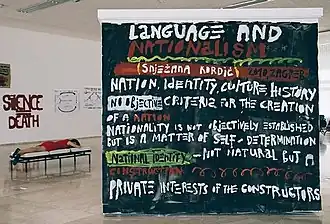 LANGUAGE AND
NATIONALISM
(SNJEŽANA KORDIĆ) 2010 ZAGREB
NATION, IDENTITY, CULTURE HISTORY
NO OBJECTIVE CRITERIA FOR THE CREATION
OF A NATION
NATIONALITY IS NOT OBJECTIVELY ESTABLISHED
BUT IS A MATTER OF SELF-DETERMINATION
NATIONAL IDENTITY - NOT NATURAL BUT A
CONSTRUCTION
PRIVATE INTERESTS OF THE CONSTRUCTORS
SILENCE
DEATH